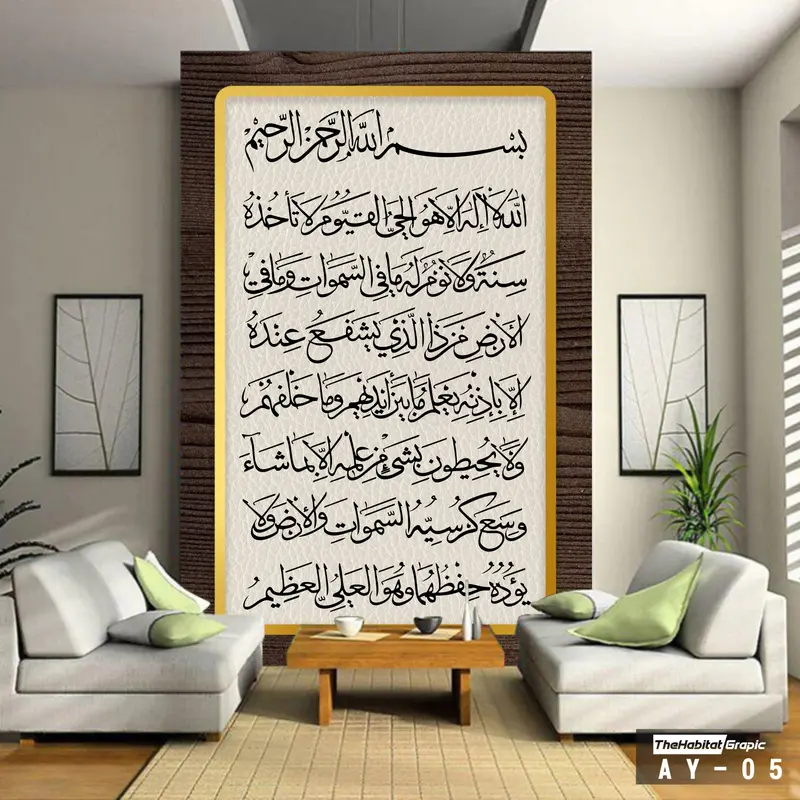 بسم الله الرحمن الرحيم
الله لا إله إلا هو الحي القيوم لا تأخذه
سنة ولا نوم له ما في السموات وما في
الأرض من ذا الذي يشفع عنده
إلا بإذنه يعلم ما بين أيديهم وما خلفهم
ولا يحيطون بشيء من علمه إلا بما شاء
وسع كرسيه السموات والأرض ولا
يؤده حفظهما وهو العلي العظيم
TheHabitat Grapic
AY-05